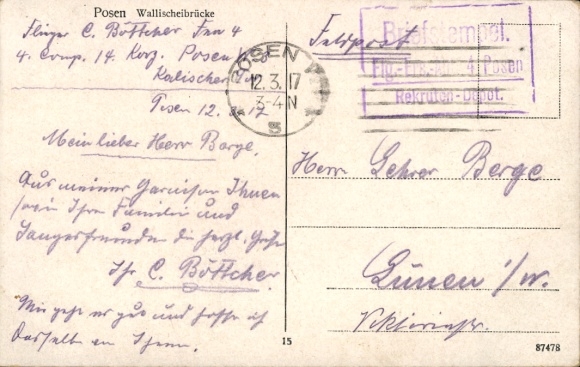 Posen Wallischeibrücke
Flieger C. Böttcher Fea 4
4. Comp. 14. Korp. Posen
Kalischer
Posen 12. 3. 17
Mein lieber Herr Berge,
Aus meiner Garnison Ihnen
sowie Ihrer Familie und
Sangesfreunden die herzl. Grüße
Ihr C. Böttcher
Mir geht es gut und hoffe ich
dasselbe von Ihnen.
POSEN
12.3.17
3-4 N
Feldpost
Briefstempel.
Flg.-Ers.-Abt. 4 Posen
Rekruten-Depot.
Herrn Lehrer Berge
Lünen i/W.
Viktoriastr.
15
87478